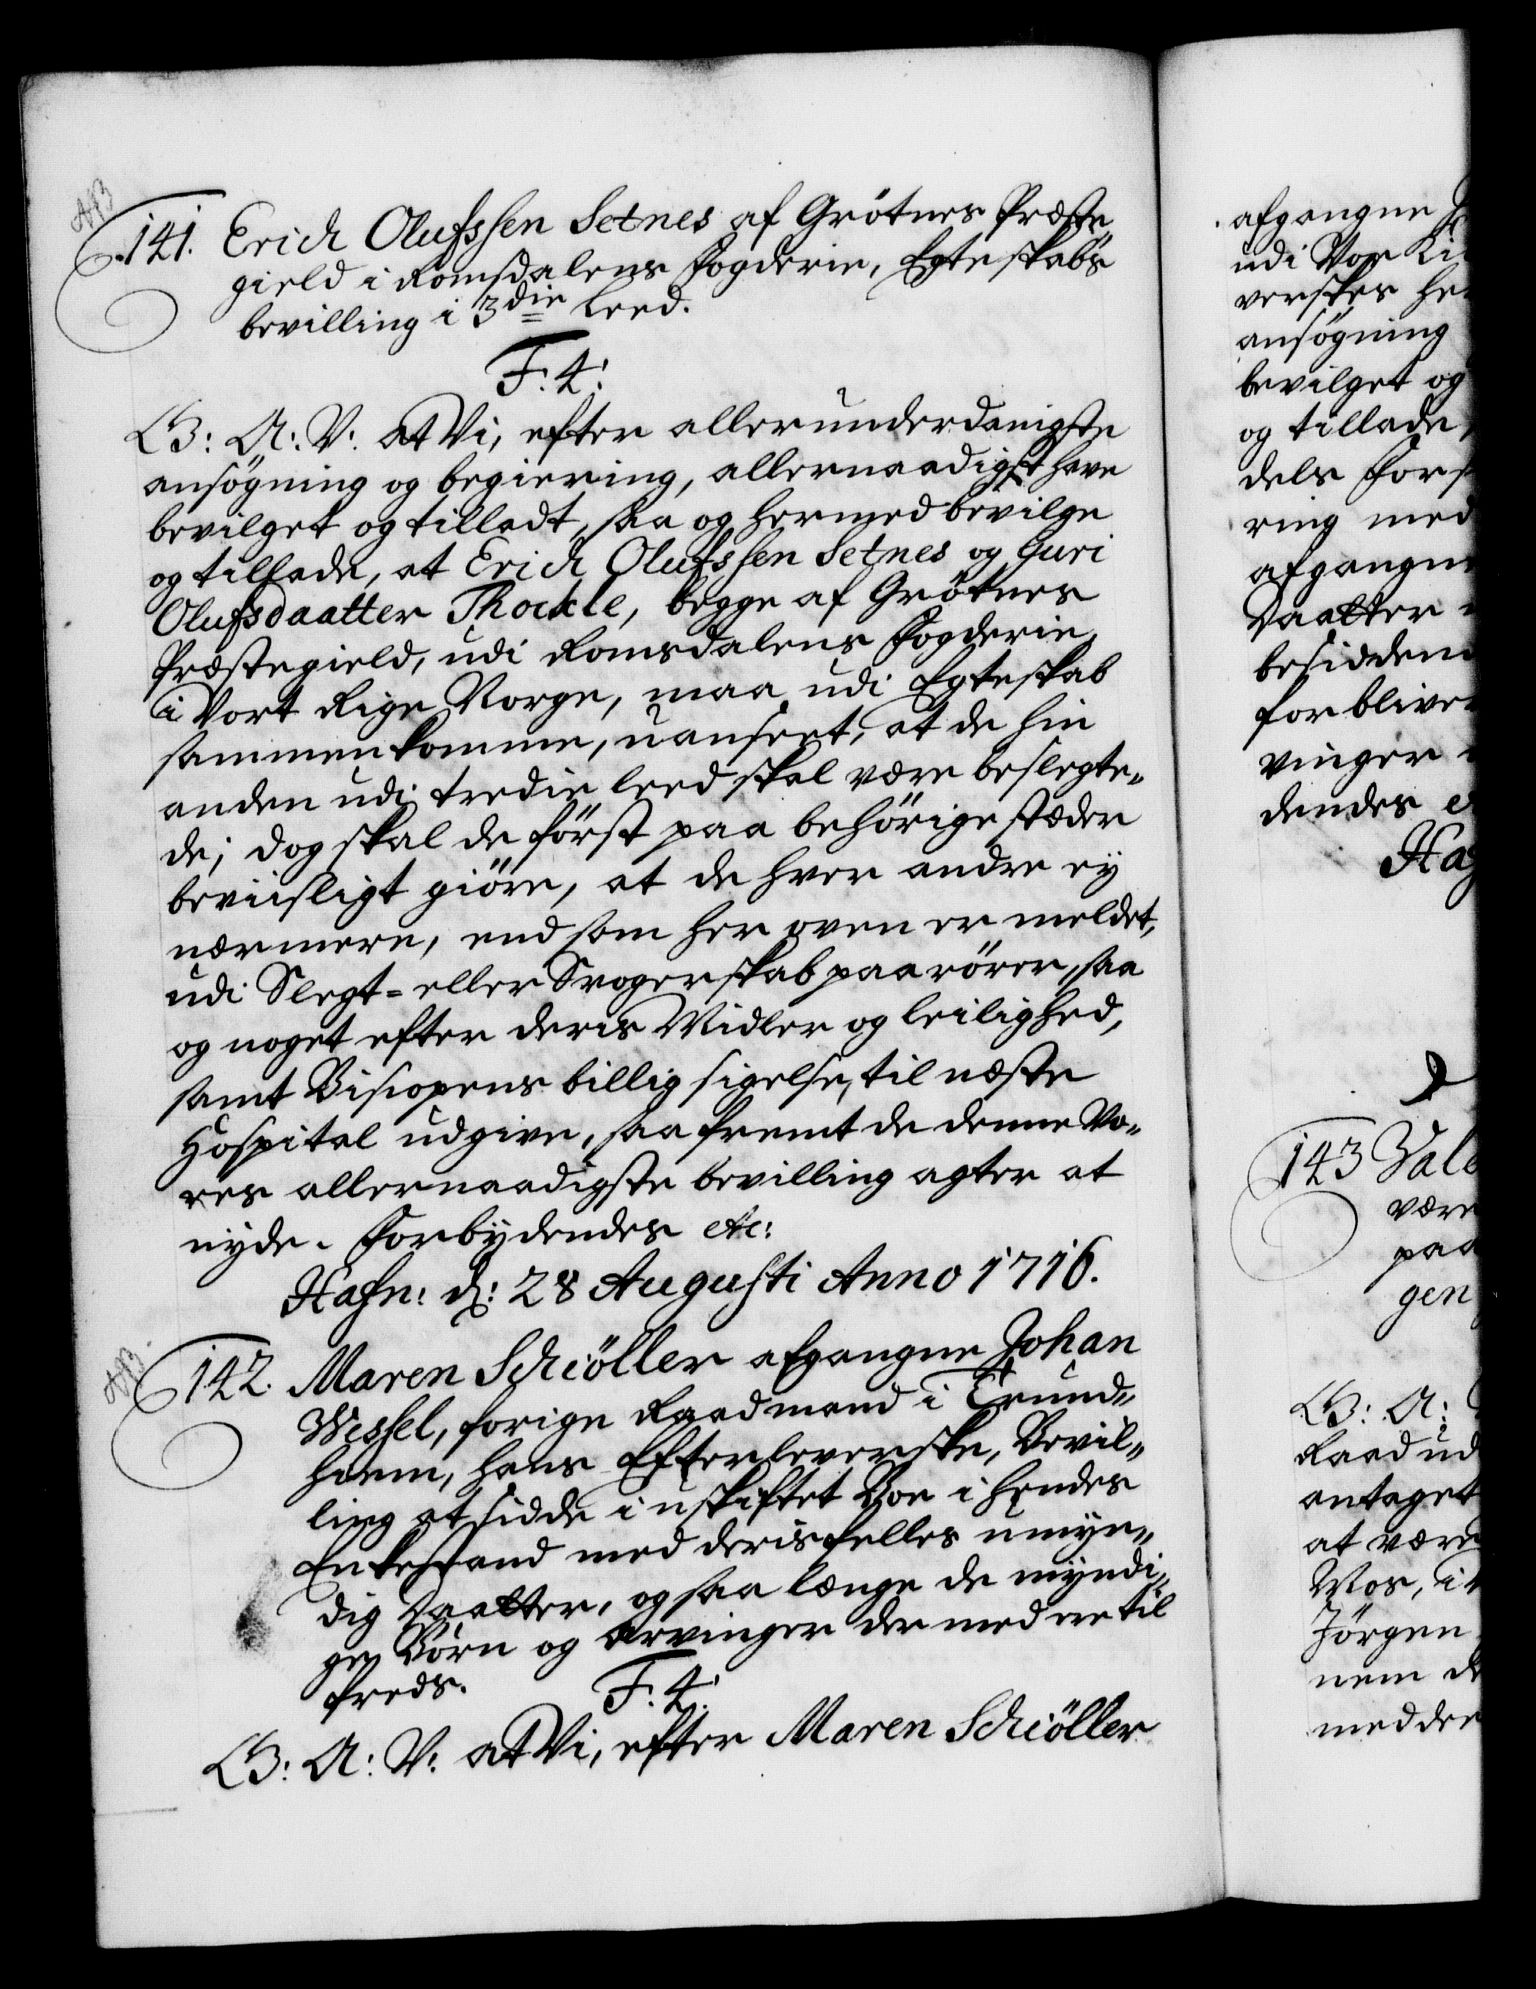 141. Erich Olufssen Setnes af Grötnes Præste
gield i Romsdalens Fogderie, Egteskabs
bevilling i 3die Leed.
F. 4:
G: A: V: at Vi, efter allerunderdanigste
ansögning og begiering, allernaadigst have
bevilget og tilladt, saa og hermed bevilge
og tillade, at Erich Olufssen Setnes og Guri
Olufsdaatter Thokle, begge af Grötnes
Præstegield, udi Romsdalens Fogderie,
i Vort Rige Norge, maa udi Egteskab
sammenkomme, uanseet, at de hin
anden udi tredie leed skal være beslegte-
de; dog skal de först paa behörige stæder
beviisligt giöre, at de hver andre ey
nærmere, end som her oven er meldet,
udi Slegt- eller Svogerskab paarörer, saa
og noget efter deris Midler og leilighed,
samt Biscopens billig sigelse, til næste
Hospital udgive, saa fremt de denne Vo-
res allernaadigste bevilling agter at
nyde. Forbydendes etc:
Hafn: d: 28 Augusti Anno 1716.
142. Maren Schöller afgangne Johan
Wessel, forige Raadmand i Trund-
hiem, hans Efterleverske, Bevil-
ling at sidde i uskiftet Boe i hendes
Enkestand med deris felles umyn-
dig Daatter, og saa længe de myndi-
ge Börn og Arvinger dermed ere til
freds.
F. 4:
G: A: V: at Vi, efter Maren Schöller
afgangne
udi Vor
verskes
ansögning
bevilget og
og tillade
dels
ring med
afgangne
Daatter
besidden
forblive
vinger
dendes
143
være
paa
gen
G: A:
Raad ud
antaget
at være
Mos, i
Jörgen
nem